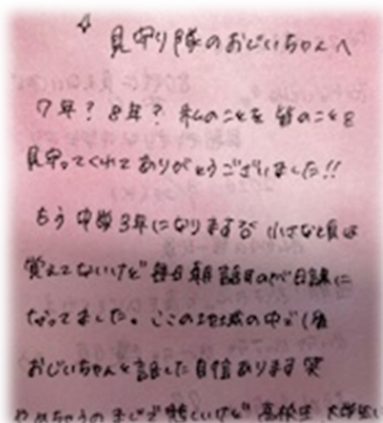 見守り隊のおじいちゃんへ
7年？8年？私のことを皆のことを
見守ってくれてありがとうございました!!
もう中学3年になりますが小さな頃は
覚えてないけど毎日朝話すのが日課に
なってました。ここの地域の中で1番
おじいちゃんと話した自信あります笑
やめちゃうのまじで悲しいけど高校生 大学生